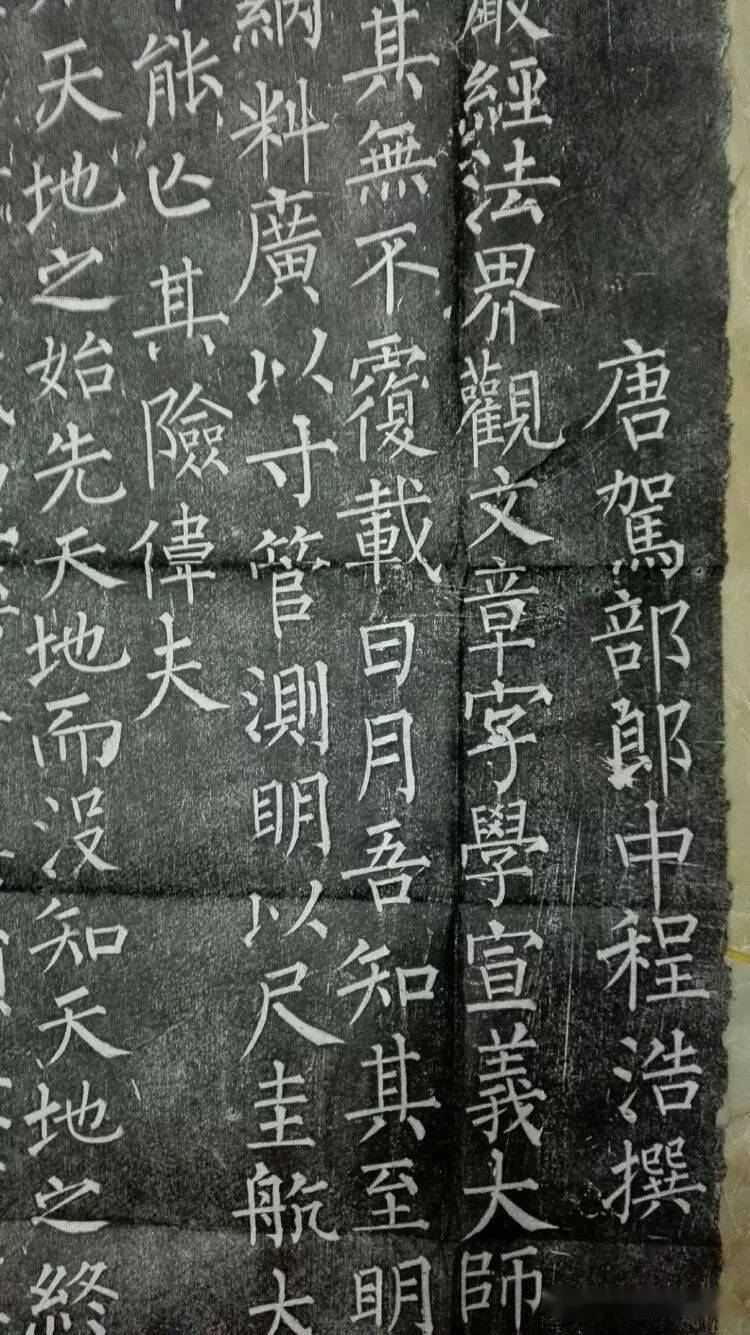 唐駕部郎中程浩撰
嚴經法界觀文章字學宣義大師
其無不覆載日月吾知其至明
納料廣以寸管測明以尺圭航大
能亡其險偉夫
天地之始先天地而没知天地之終